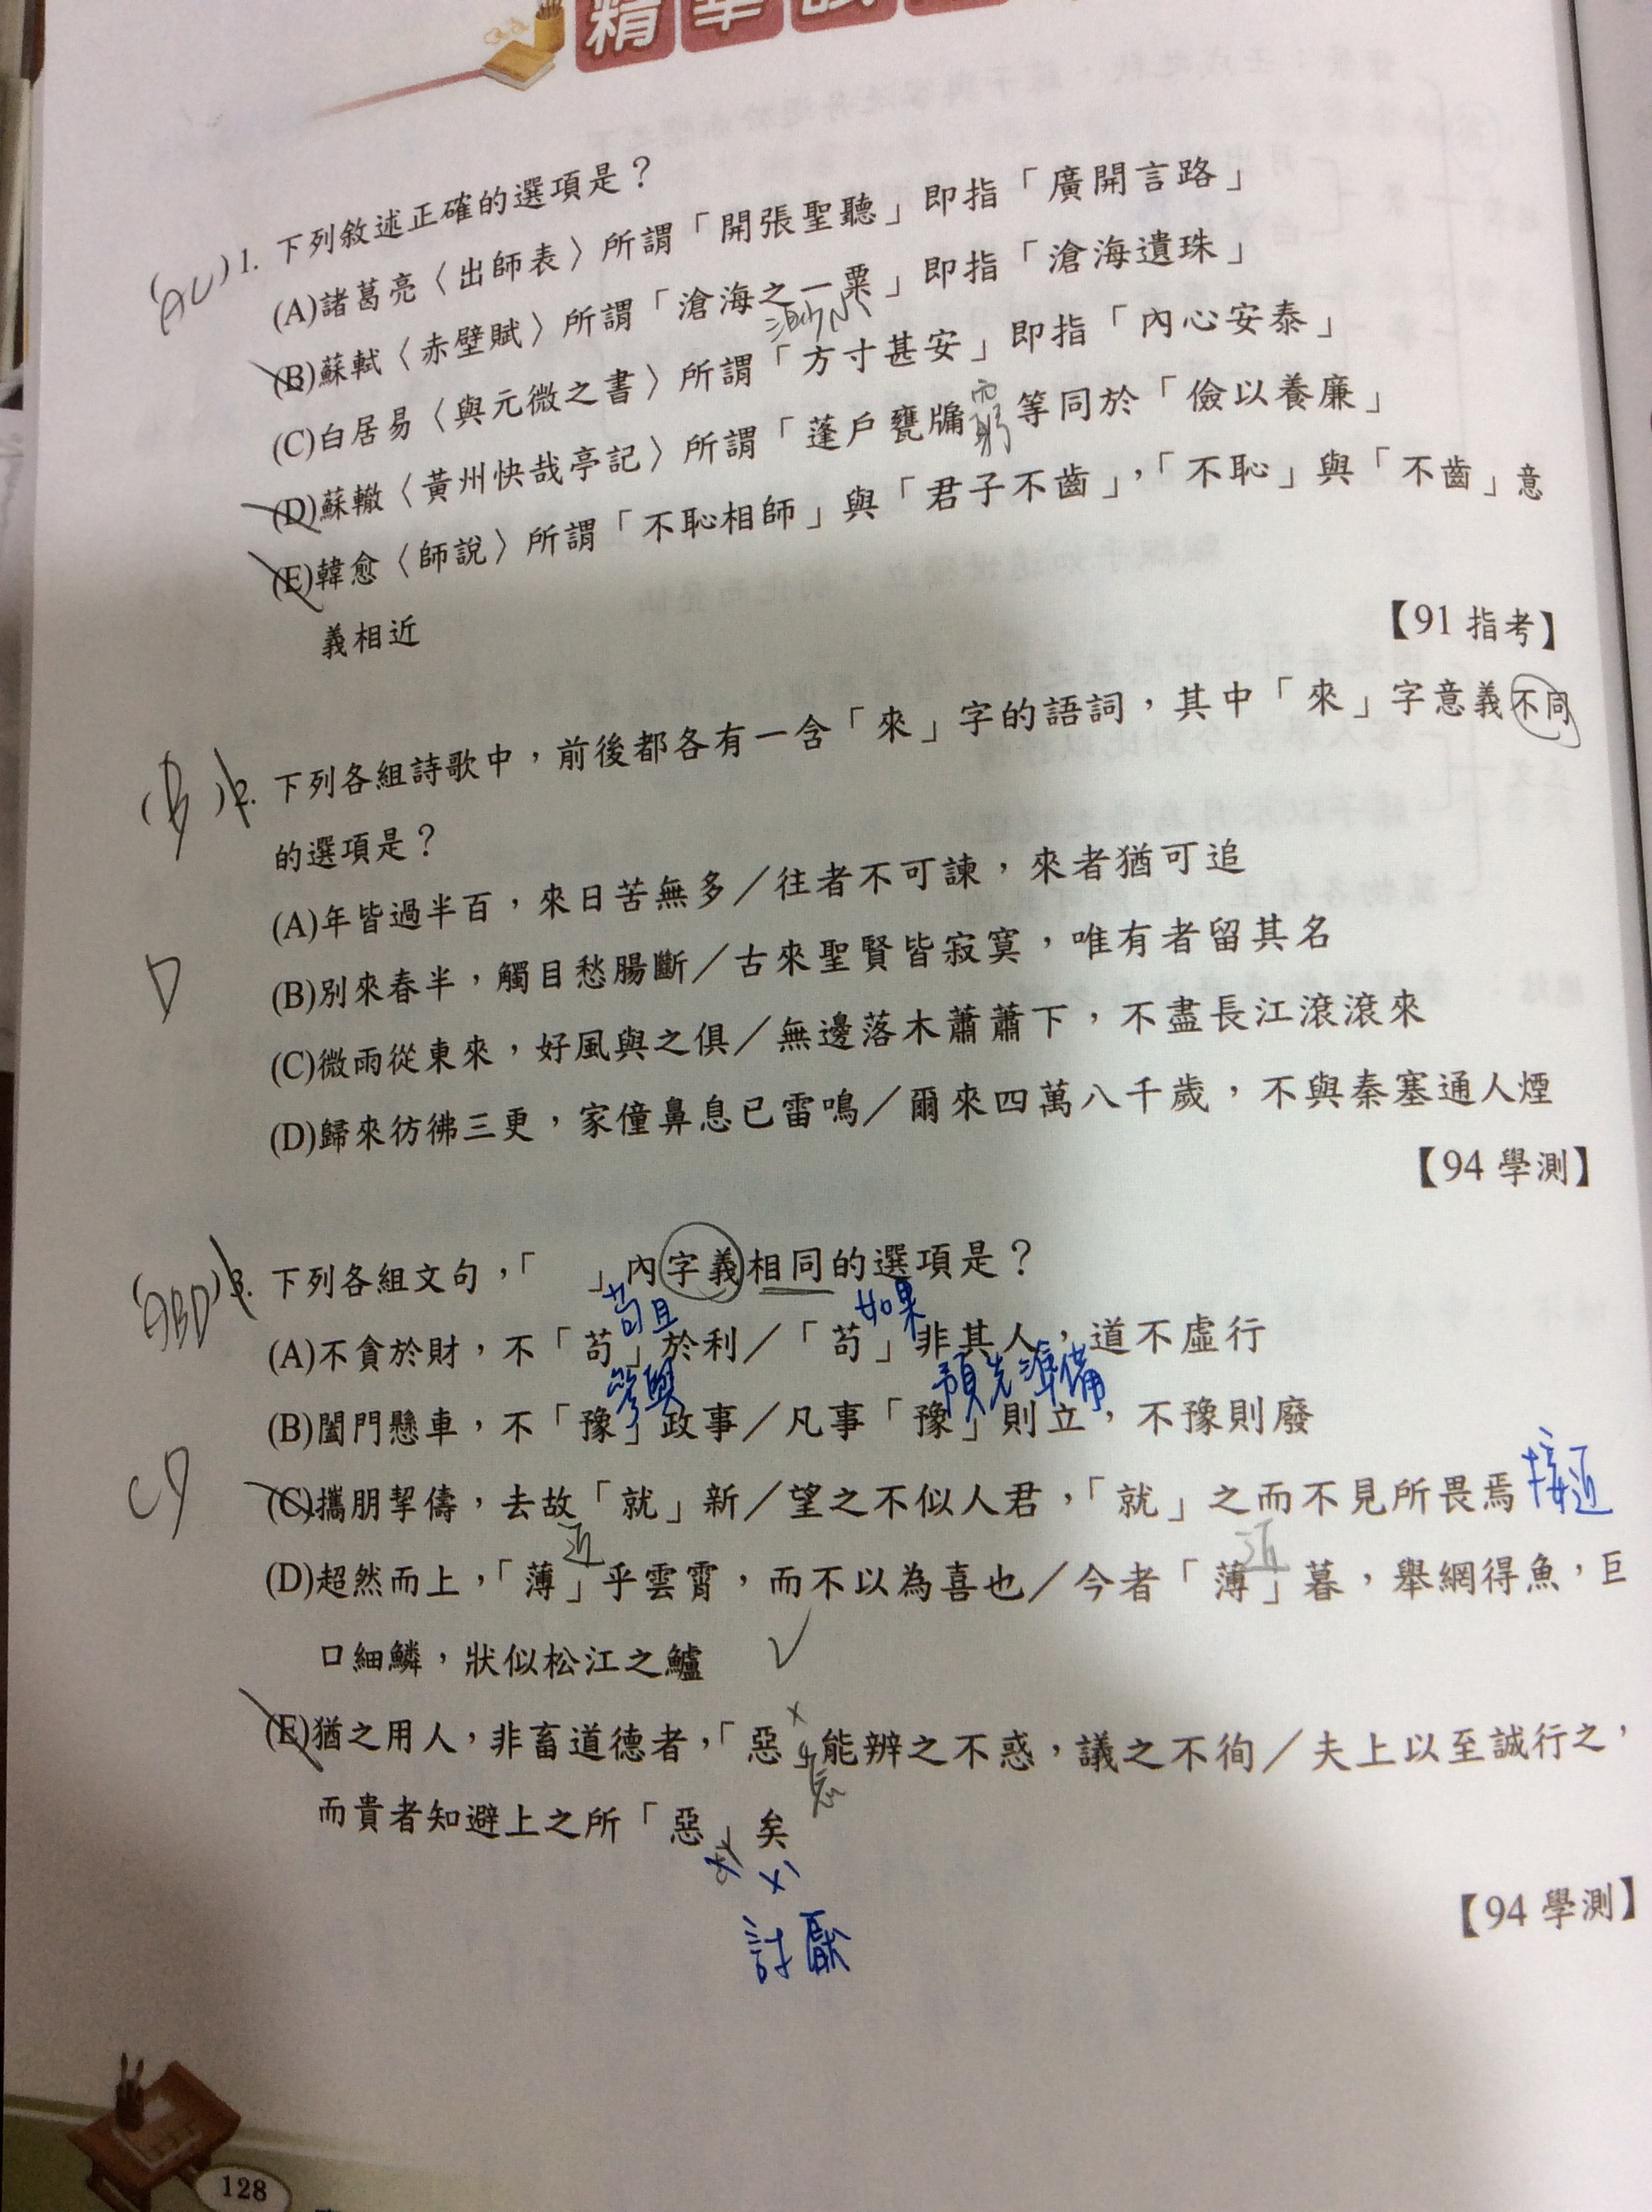 精
(AC) 1. 下列敘述正確的選項是？
(A)諸葛亮〈出師表〉所謂「開張聖聽」即指「廣開言路」
(B)蘇軾〈赤壁賦〉所謂「滄海之一粟」即指「滄海遺珠」
渺小
(C)白居易〈與元微之書〉所謂「方寸甚安」即指「內心安泰」
(D)蘇轍〈黃州快哉亭記〉所謂「蓬戶甕牖」等同於「儉以養廉」
窮
(E)韓愈〈師說〉所謂「不恥相師」與「君子不齒」，「不恥」與「不齒」意
義相近
【91 指考】
(B) 2. 下列各組詩歌中，前後都各有一含「來」字的語詞，其中「來」字意義不同
的選項是？
(A)年皆過半百，來日苦無多／往者不可諫，來者猶可追
D
(B)別來春半，觸目愁腸斷／古來聖賢皆寂寞，唯有者留其名
(C)微雨從東來，好風與之俱／無邊落木蕭蕭下，不盡長江滾滾來
(D)歸來彷彿三更，家僮鼻息已雷鳴／爾來四萬八千歲，不與秦塞通人煙
【94 學測】
(ABD) 3. 下列各組文句，「　」內字義相同的選項是？
苟且 如果
(A)不貪於財，不「苟」於利／「苟」非其人，道不虛行
參與 預先準備
(B)闔門懸車，不「豫」政事／凡事「豫」則立，不豫則廢
CD
(C)攜朋挈儔，去故「就」新／望之不似人君，「就」之而不見所畏焉 接近
近 近
(D)超然而上，「薄」乎雲霄，而不以為喜也／今者「薄」暮，舉網得魚，巨
口細鱗，狀似松江之鱸
(E)猶之用人，非畜道德者，「惡」能辨之不惑，議之不徇／夫上以至誠行之，
而貴者知避上之所「惡」矣
ㄨˋ
討厭
【94 學測】
128